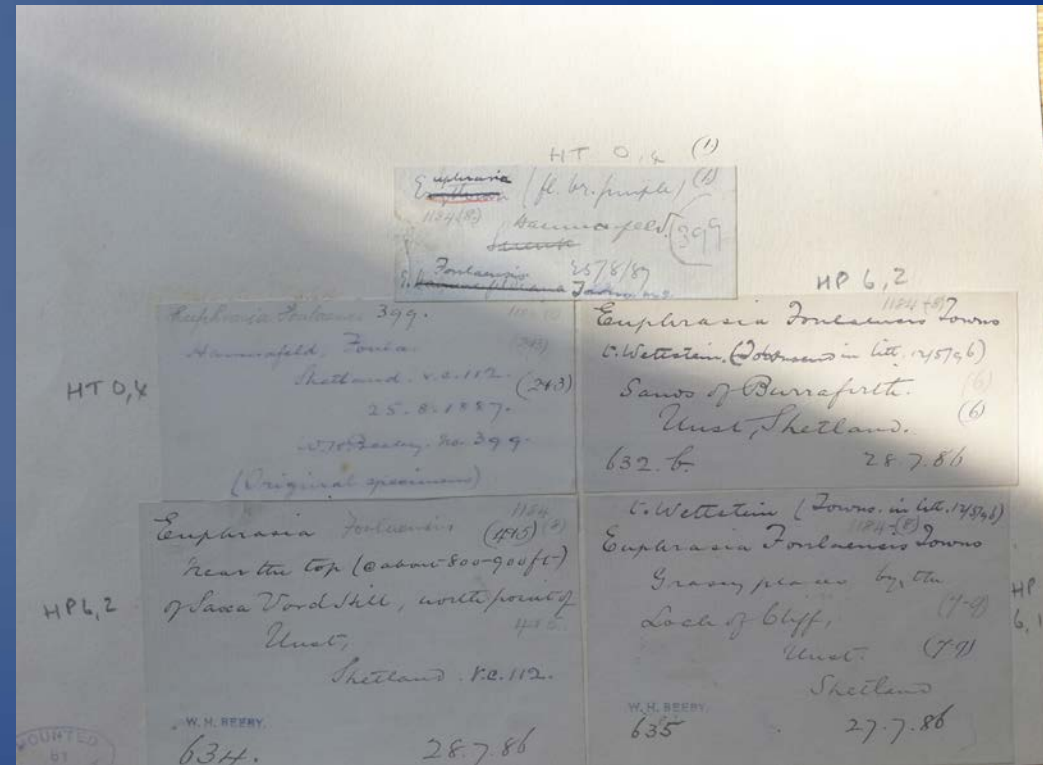 HT 0,4 (1)
Euphrasia (fl. br. purple) (1)
1184(8)
Hamnafeld. (399
Foulaensis 25/8/87
E.
Euphrasia Foulaensis 399.
Hamnafeld, Foula. (243)
Shetland. v.c. 112. (243)
25.8.1887.
W.H. Beeby. No. 399.
(Original specimens)
HT 0,4
HP 6,2
1184(8)
Euphrasia Foulaensis Towns
t. Wettstein. (Townsend in litt. 12/5/96)
Sands of Burrafirth. (6)
Unst, Shetland. (6)
632. b. 28.7.86
HP 6,2
1184
Euphrasia Foulaensis (4+5) (8)
Near the top (@ about 800-900 ft)
of Saxa Vord Hill, north point of
Unst,
Shetland. v.c. 112.
W. H. BEEBY.
634. 28.7.86
t. Wettstein (Towns. in litt. 12/5/96)
1184(8)
Euphrasia Foulaensis Towns
Grassy places by the
Loch of Cliff, (7-9)
Unst. (7-9)
Shetland
W. H. BEEBY.
635 27.7.86
HP
6,1
MOUNTED
BY